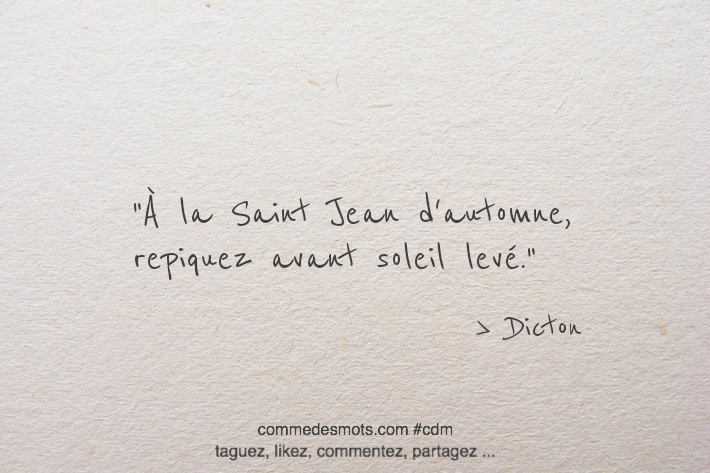 "À la Saint Jean d'automne,
repiquez avant soleil levé."
> Dicton
commedesmots.com #cdm
taguez, likez, commentez, partagez ...